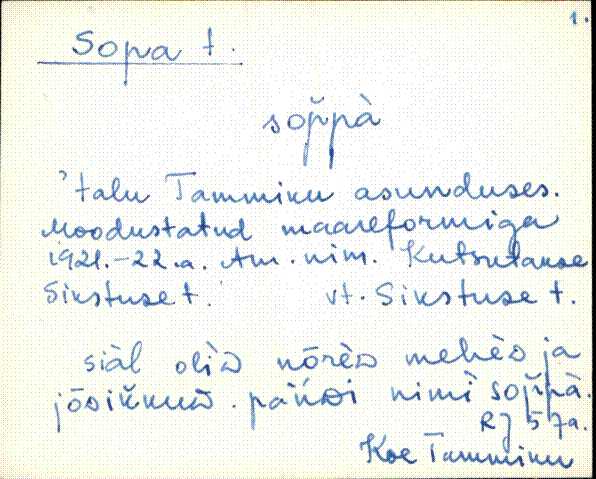 1.
Sopa t.
sop̆pà
'talu Tammiku asunduses.
Moodustatud maareformiga
1921.-22.a. Am. nim. Kutsutakse
Sikstuse t. vt. Sikstuse t.
siàl olìD nōrèD mehèD ja
nimì sop̆pà.
RJ 57a.
Koe Tammiku